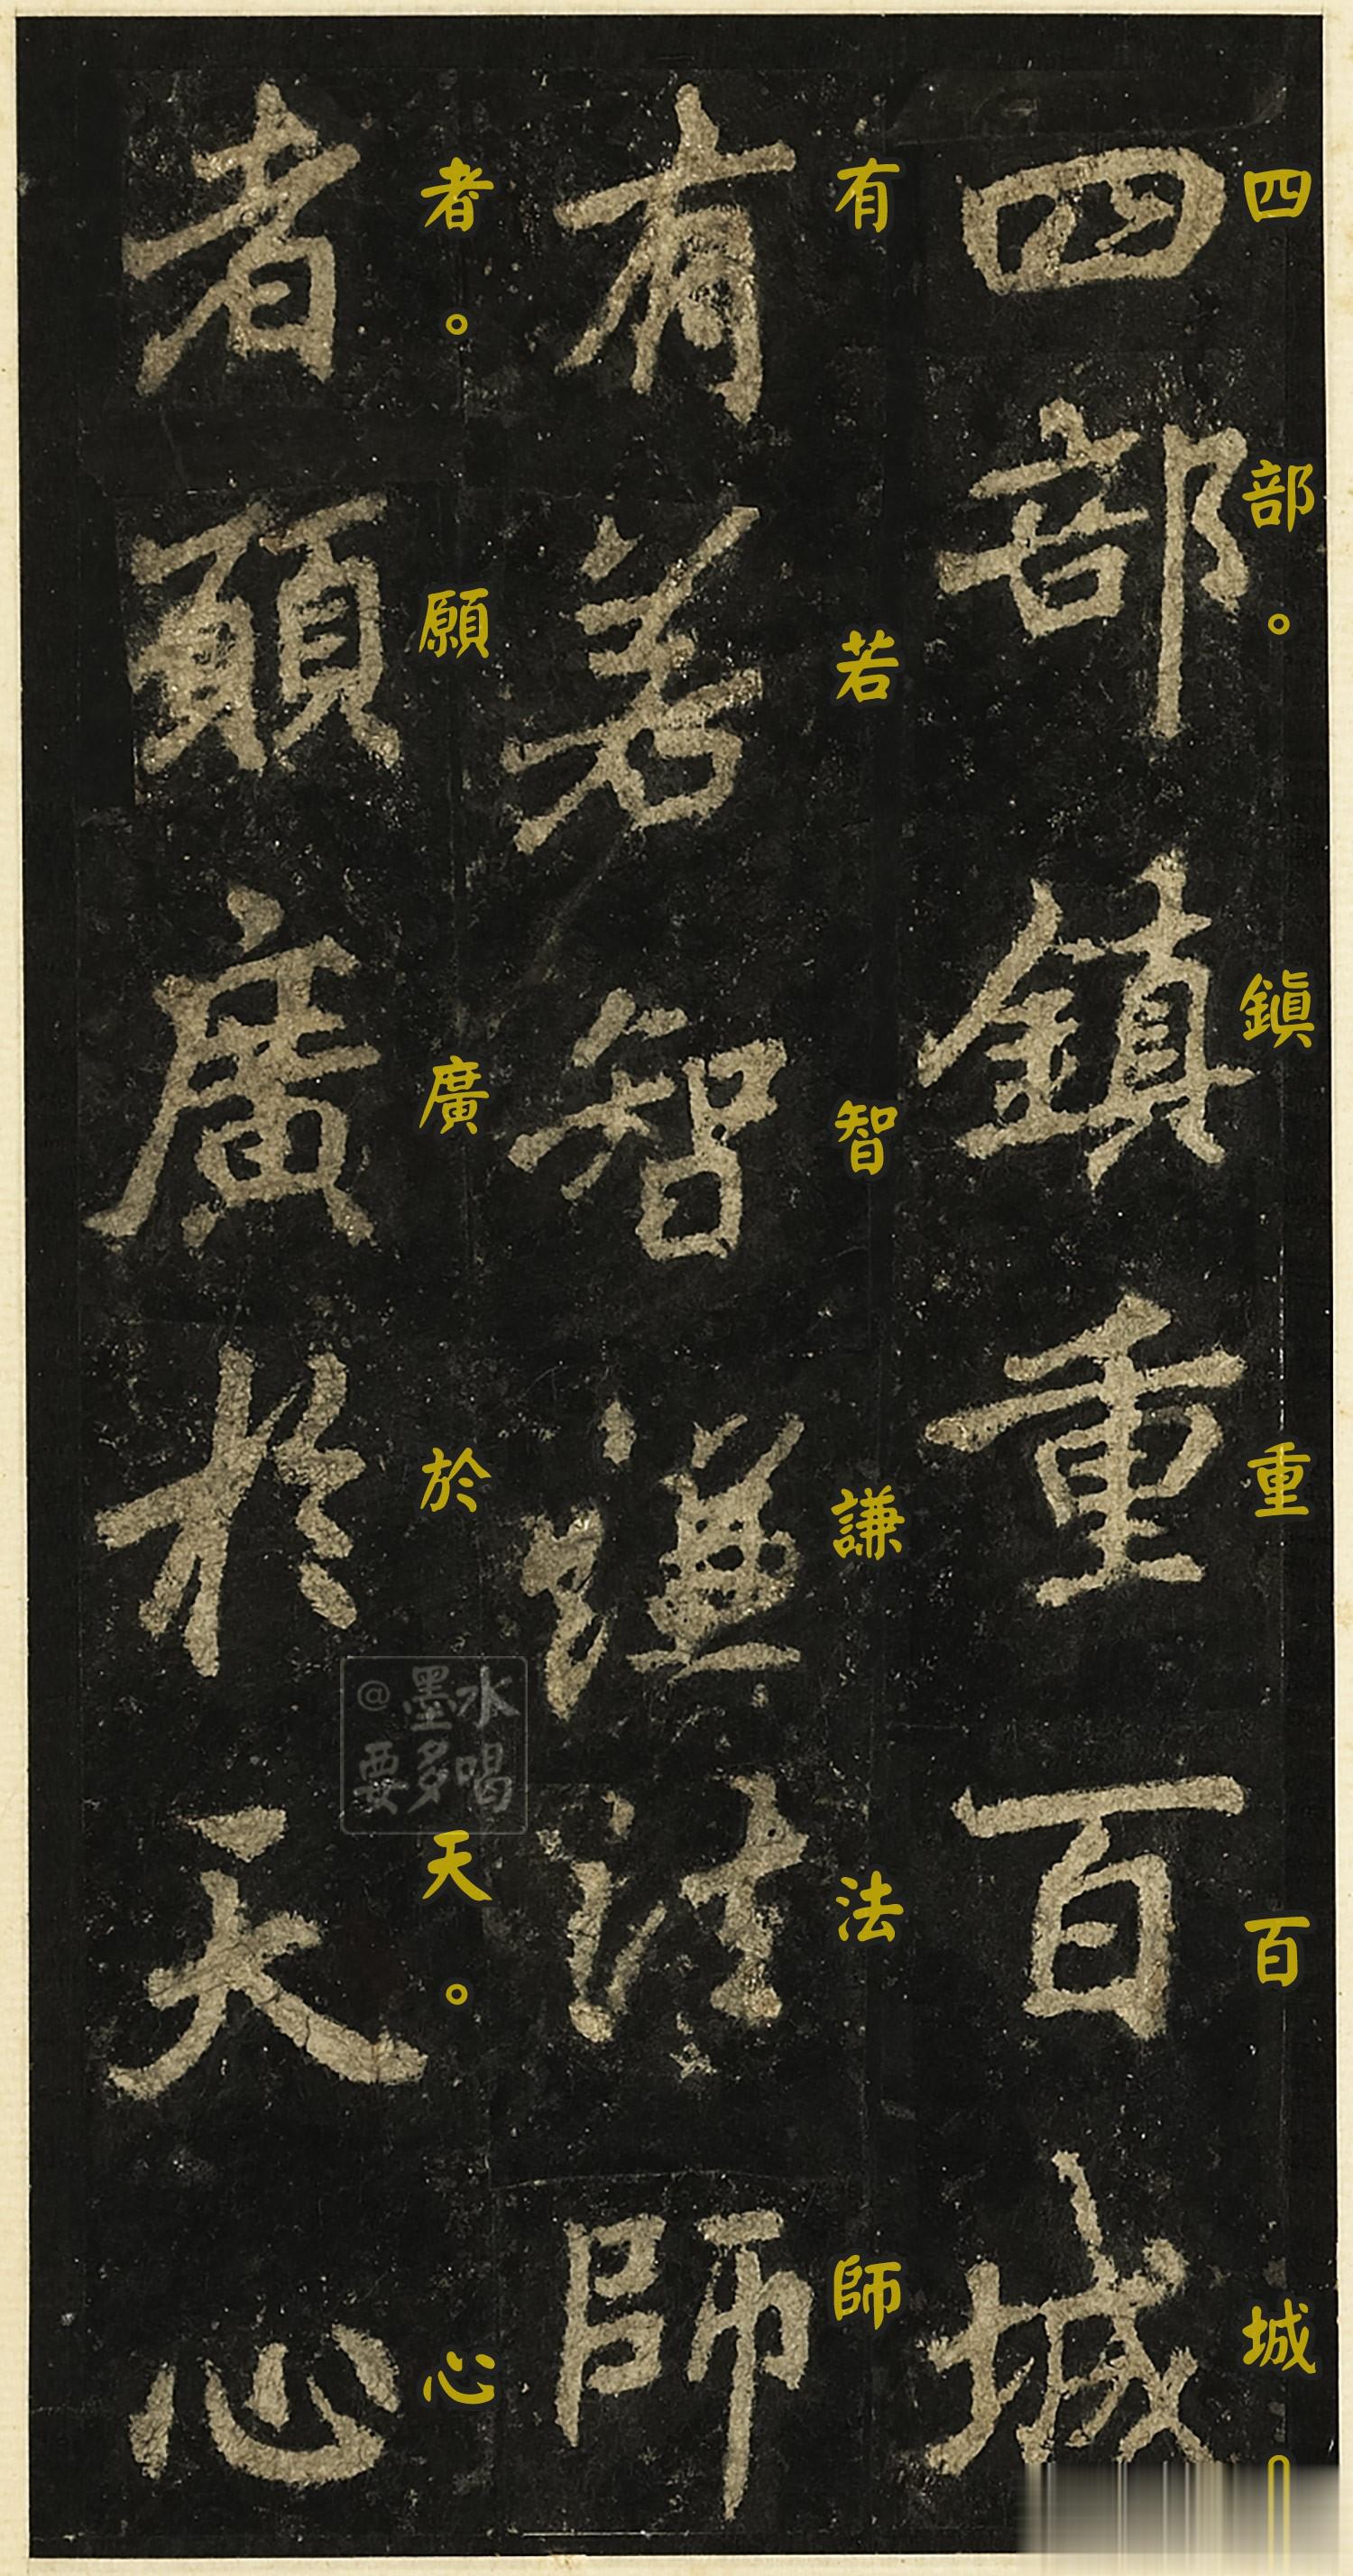 四部鎮重百城
四部。鎮重百城
有若智謙法師
有若智謙法師
者願廣於天心
者。願廣於天。心
@墨水
要多喝